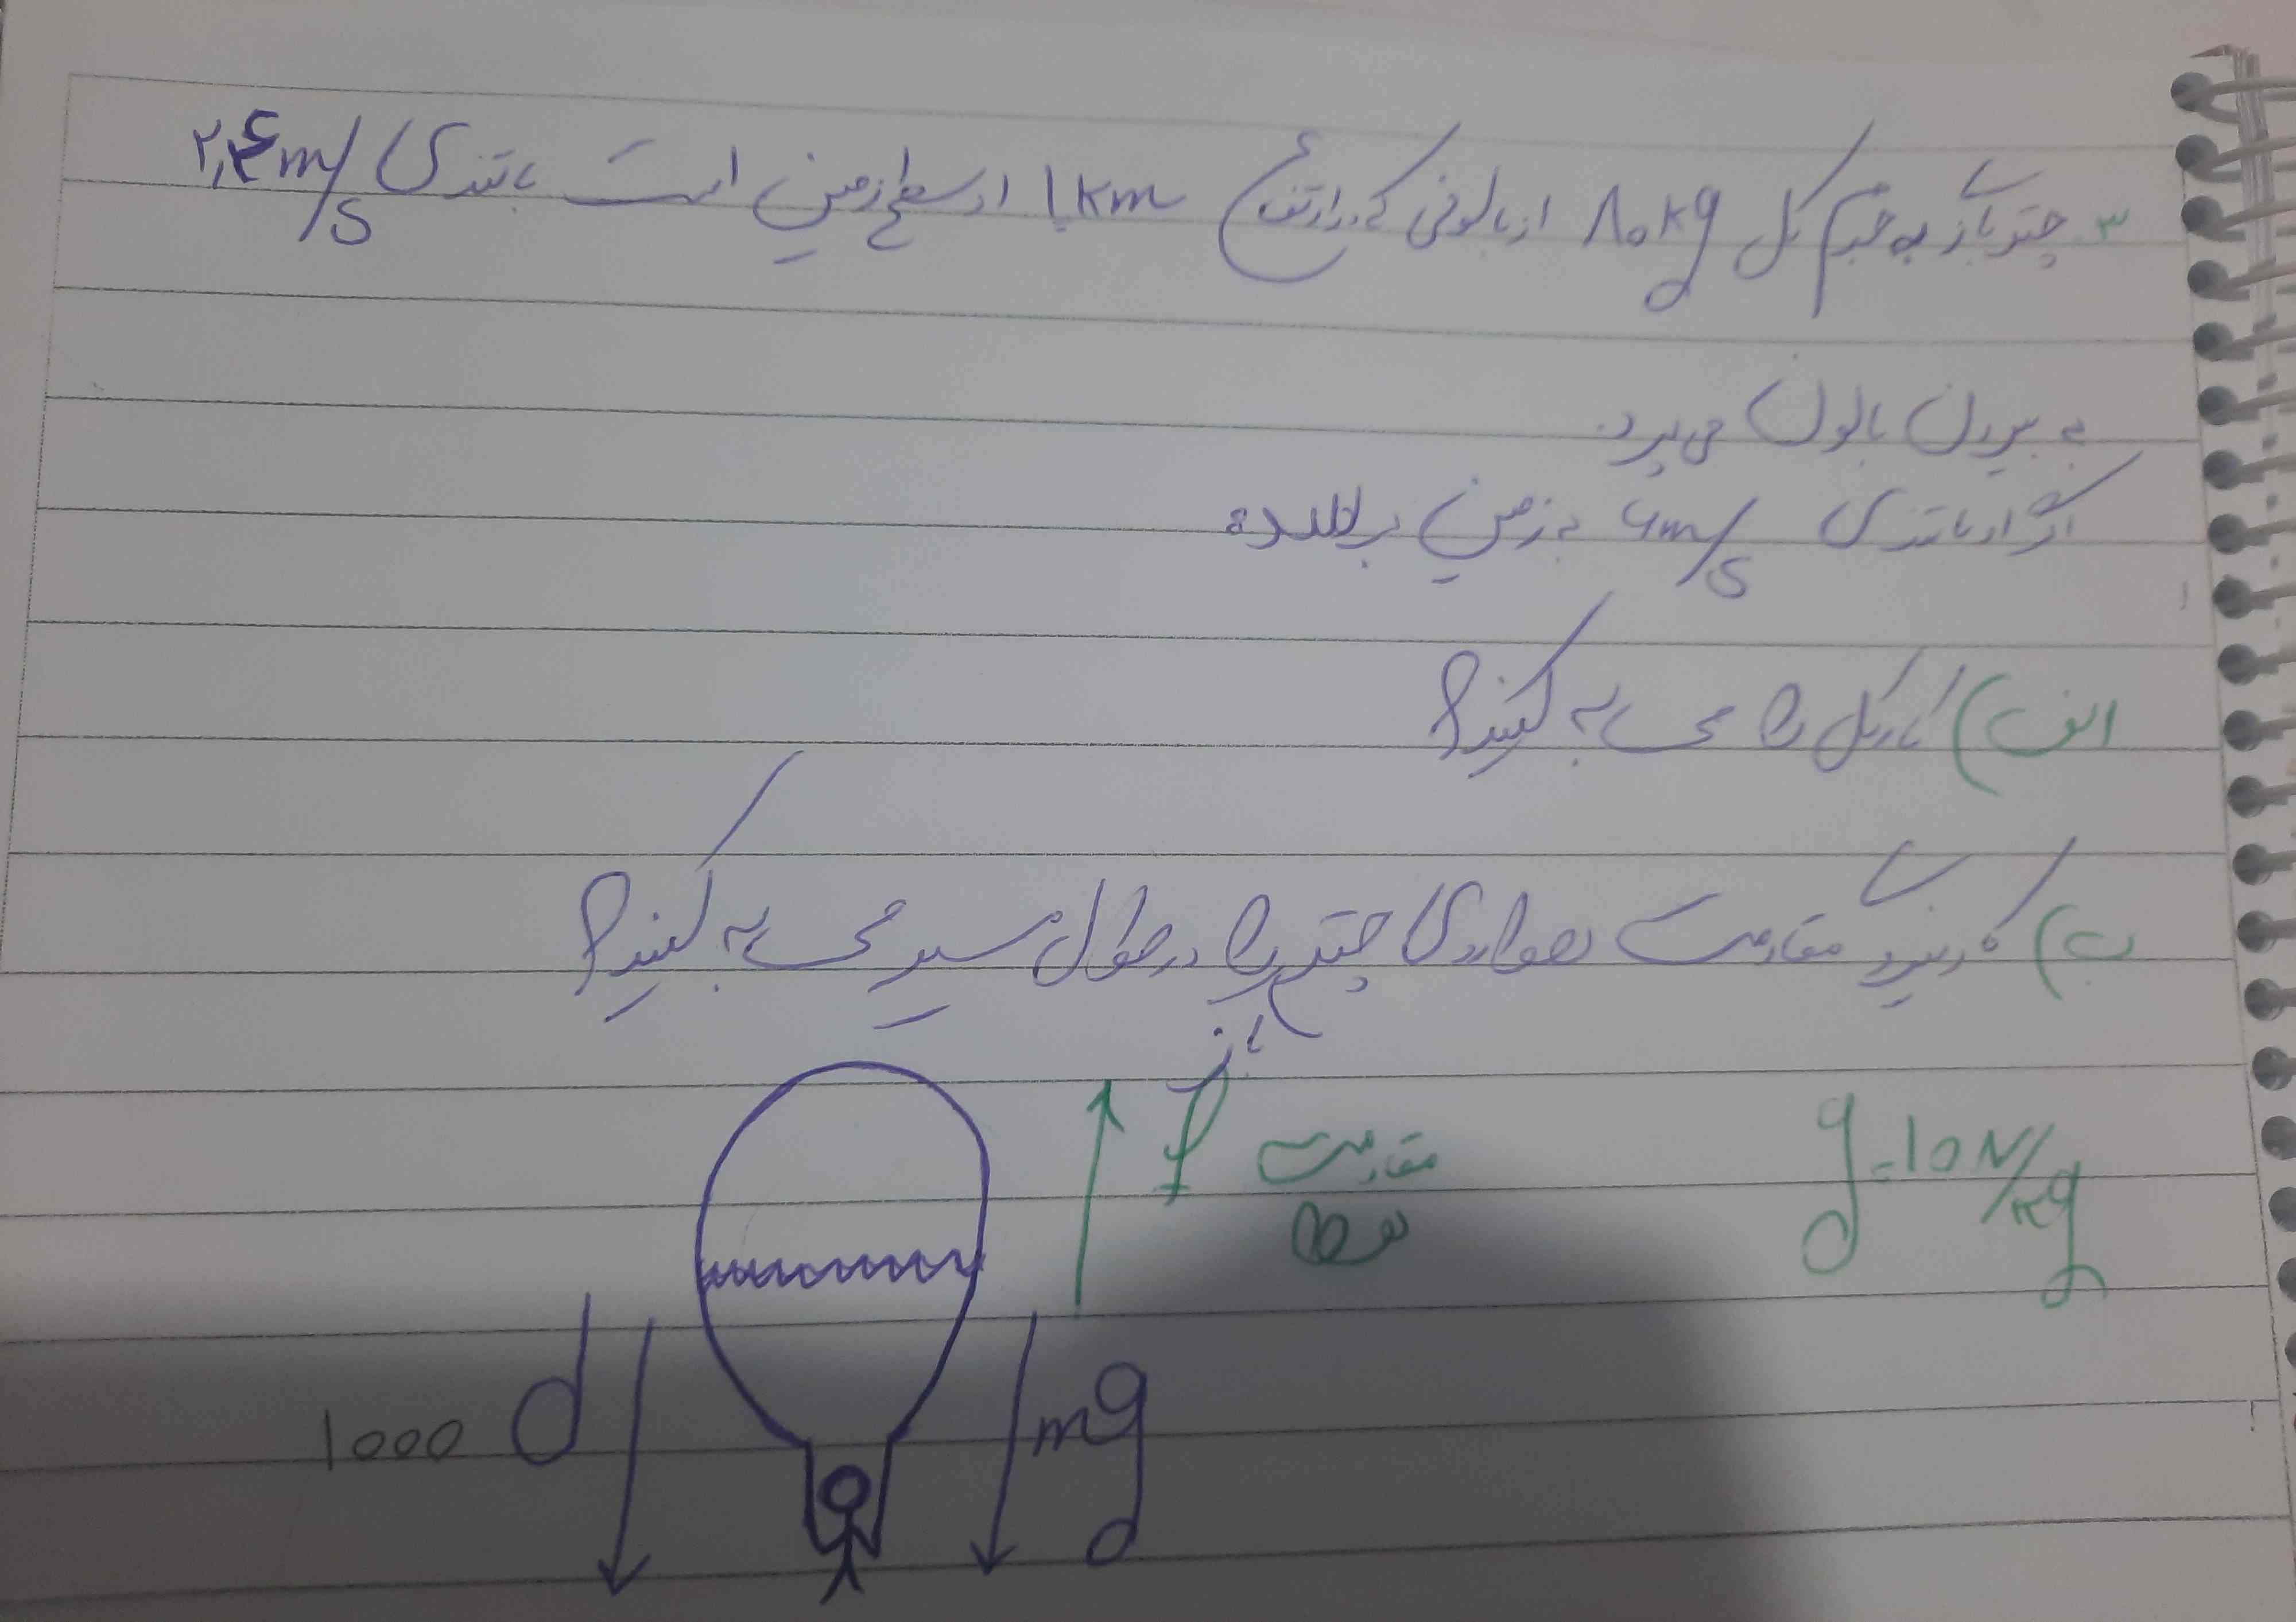 ۳. چتربازی به جرم کل ۸۰kg از بالونی که در ارتفاع ۱km از سطح زمین است با تندی m/s
به بیرون بالون می‌پرد.
اگر او با تندی ۶m/s به زمین برسد
الف) کار کل را محاسبه کنید؟
ب) کار نیروی مقاومت هوا روی چترباز را در طول مسیر محاسبه کنید؟
f مقاومت هوا
g=10N/kg
1000 d
mg